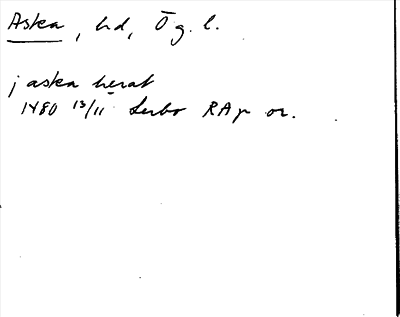 Aska, hd, Ög. l.
j aska herat
1480 13/11 Lerbo RAp or.